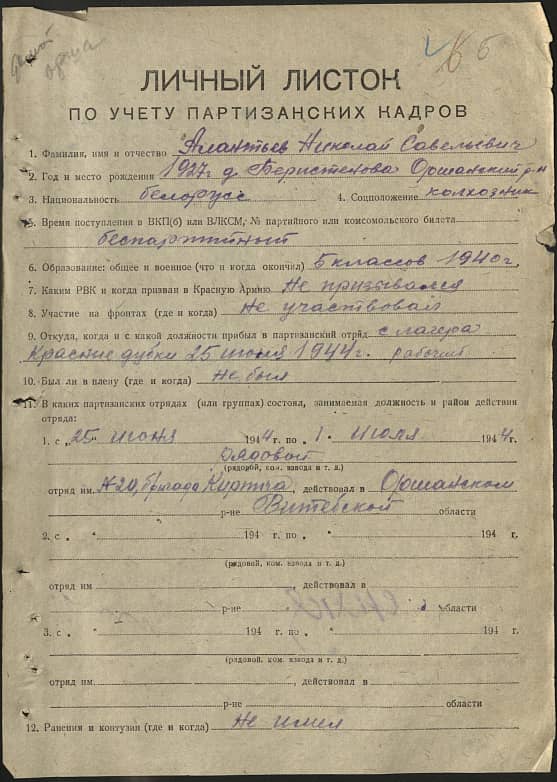 6 5
ЛИЧНЫЙ ЛИСТОК
ПО УЧЕТУ ПАРТИЗАНСКИХ КАДРОВ
1. Фамилия, имя и отчество Алантьев Николай Савельевич
2. Год и место рождения 1927 г. д. Оршанский р-н
3. Национальность белорус 4. Соцположение колхозник
5. Время поступления в ВКП(б) или ВЛКСМ, № партийного или комсомольского билета
беспартийный
6. Образование: общее и военное (что и когда окончил) 5 классов 1940 г.
7. Каким РВК и когда призван в Красную Армию Не призывался
8. Участие на фронтах (где и когда) Не участвовал
9. Откуда, когда и с какой должности прибыл в партизанский отряд с лагеря
Красные дубки 25 июня 1944 г. рабочий
10. Был ли в плену (где и когда) Не был
11. В каких партизанских отрядах (или группах) состоял, занимаемая должность и район действия
отряда:
1. с „25 июня 1944 г. по „1. июля 1944 г.
рядовой
(рядовой, ком. взвода и т. д.)
отряд им. №20, бригада действовал в Оршанском
р-не Витебской области
2. с „ " 194 г. по „ " 194 г.
(рядовой, ком. взвода и т. д.)
отряд им , действовал в
р-не области
3. с „ " 194 г. по „ " 194 г.
(рядовой, ком. взвода и т. д.)
отряд им. , действовал в
р-не области
12. Ранения и контузии (где и когда) Не имел